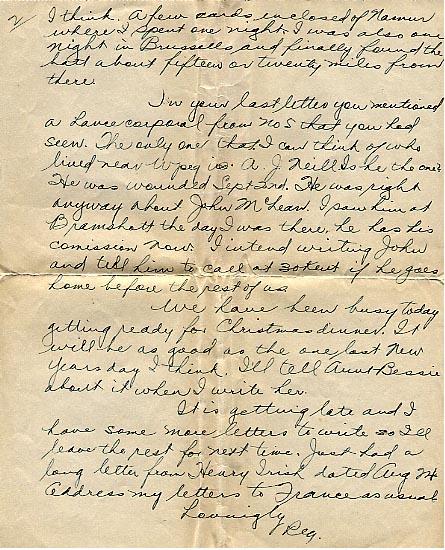 2/ I think. A few cards inclosed of Namur
where I spent one night. I was also one
night in Brussells and finally found the
batt about fifteen or twenty miles from
there.
In your last letter you mentioned
a Lance corporal from No 5 that you had
seen. The only one that I can think of who
lived near Wpeg is A. J. Neill Is he the one.
He was wounded Sept 2nd. He was right
anyway about John McLean. I saw him at
Bramshott the day I was there. he has his
comission now. I intend writing John
and tell him to call at if he goes
home before the rest of us
We have been busy today
getting ready for Christmas dinner. It
will be as good as the one last New
Years day I think. I'll tell Aunt Bessie
about it when I write her.
It is getting late and I
have some more letters to write so I'll
leave the rest for next time. Just had a
long letter from Henry Irish dated Aug 24
Address my letters to France as usual
Lovingly
Reg.